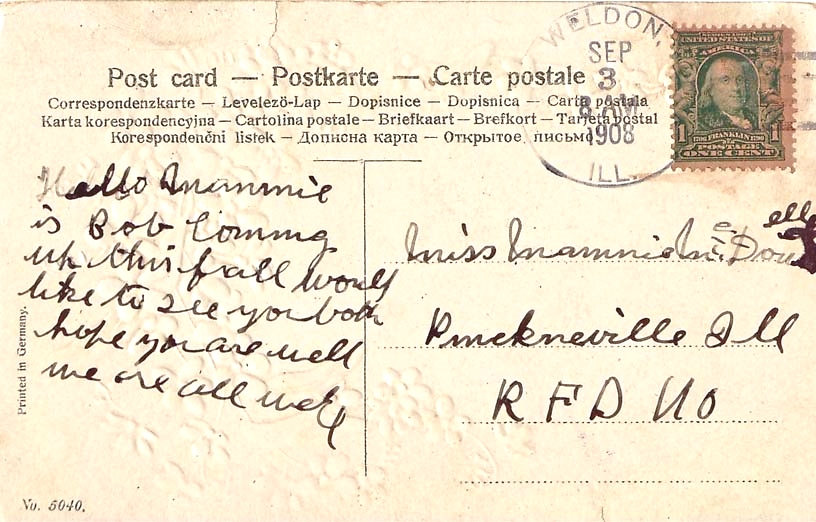 WELDON,
SEP
3
8 AM
1908
ILL.
UNITED STATES OF
AMERICA
1 1
1706 FRANKLIN 1790
POSTAGE
ONE CENT
Post card — Postkarte — Carte postale
Correspondenzkarte — Levelező-Lap — Dopisnice — Dopisnica — Carta postala
Karta korespondencyjna — Cartolina postale — Briefkaart — Brefkort — Tarjeta postal
Korespondenční listek — Дописна карта — Открытое письмо
Hello Mammie
is Bob Comming
up this fall would
like to see you both
hope you are well
we are all well
Miss Mammie
Pinckneville Ill
R F D No
Printed in Germany.
No. 5040.